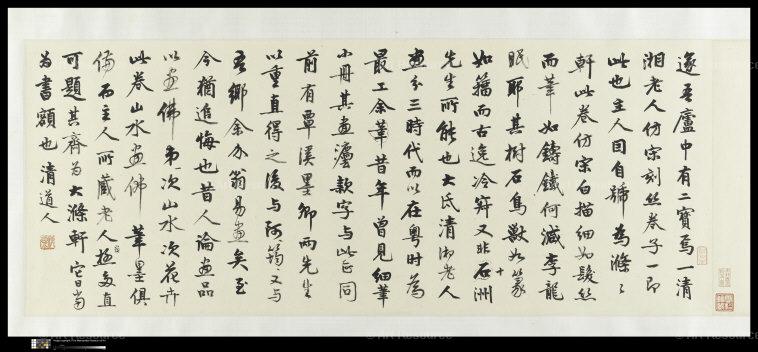 遂吾廬中有二寶焉一清
湘老人仿宋刻絲卷子一即
此也主人因自號為滌
軒此卷仿宋白描細如髮絲
而筆如鑄鐵何減李龍
眠耶其樹石鳥獸如篆
如籀而古逸冷穽又非石洲
先生所能也大氐清湘老人
畫分三時代而以在粵時為
最工余筆昔年曾見細筆
小冊其畫瀍款字與此正同
前有覃溪墨卿兩先生
以重直得之後與阿筠又與
吾鄉余翁易畫矣至
今猶追悔也昔人論畫品
以畫佛弟一次山水次花卉
此卷山水畫佛筆墨俱
備而主人所藏老人極多直
可題其齊為大滌軒它日當
為書額也清道人